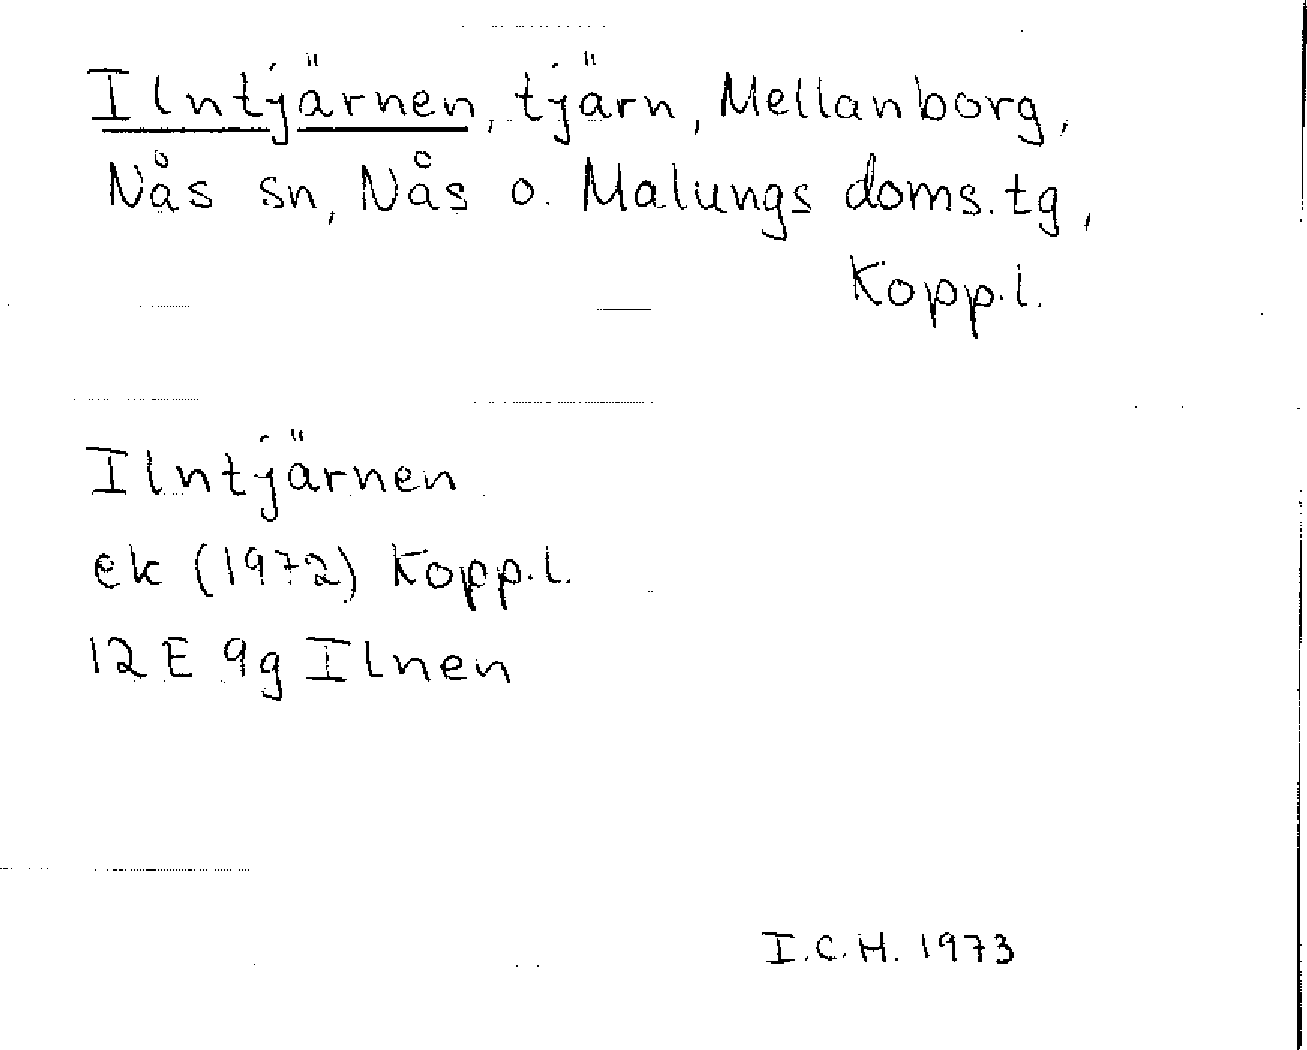 Ilntjärnen, tjärn, Mellanborg,
Nås sn, Nås o. Malungs doms.tg,
Kopp.l.
Ilntjärnen
ek (1972) Kopp.l.
12 E 9g Ilnen
I.C.H. 1973